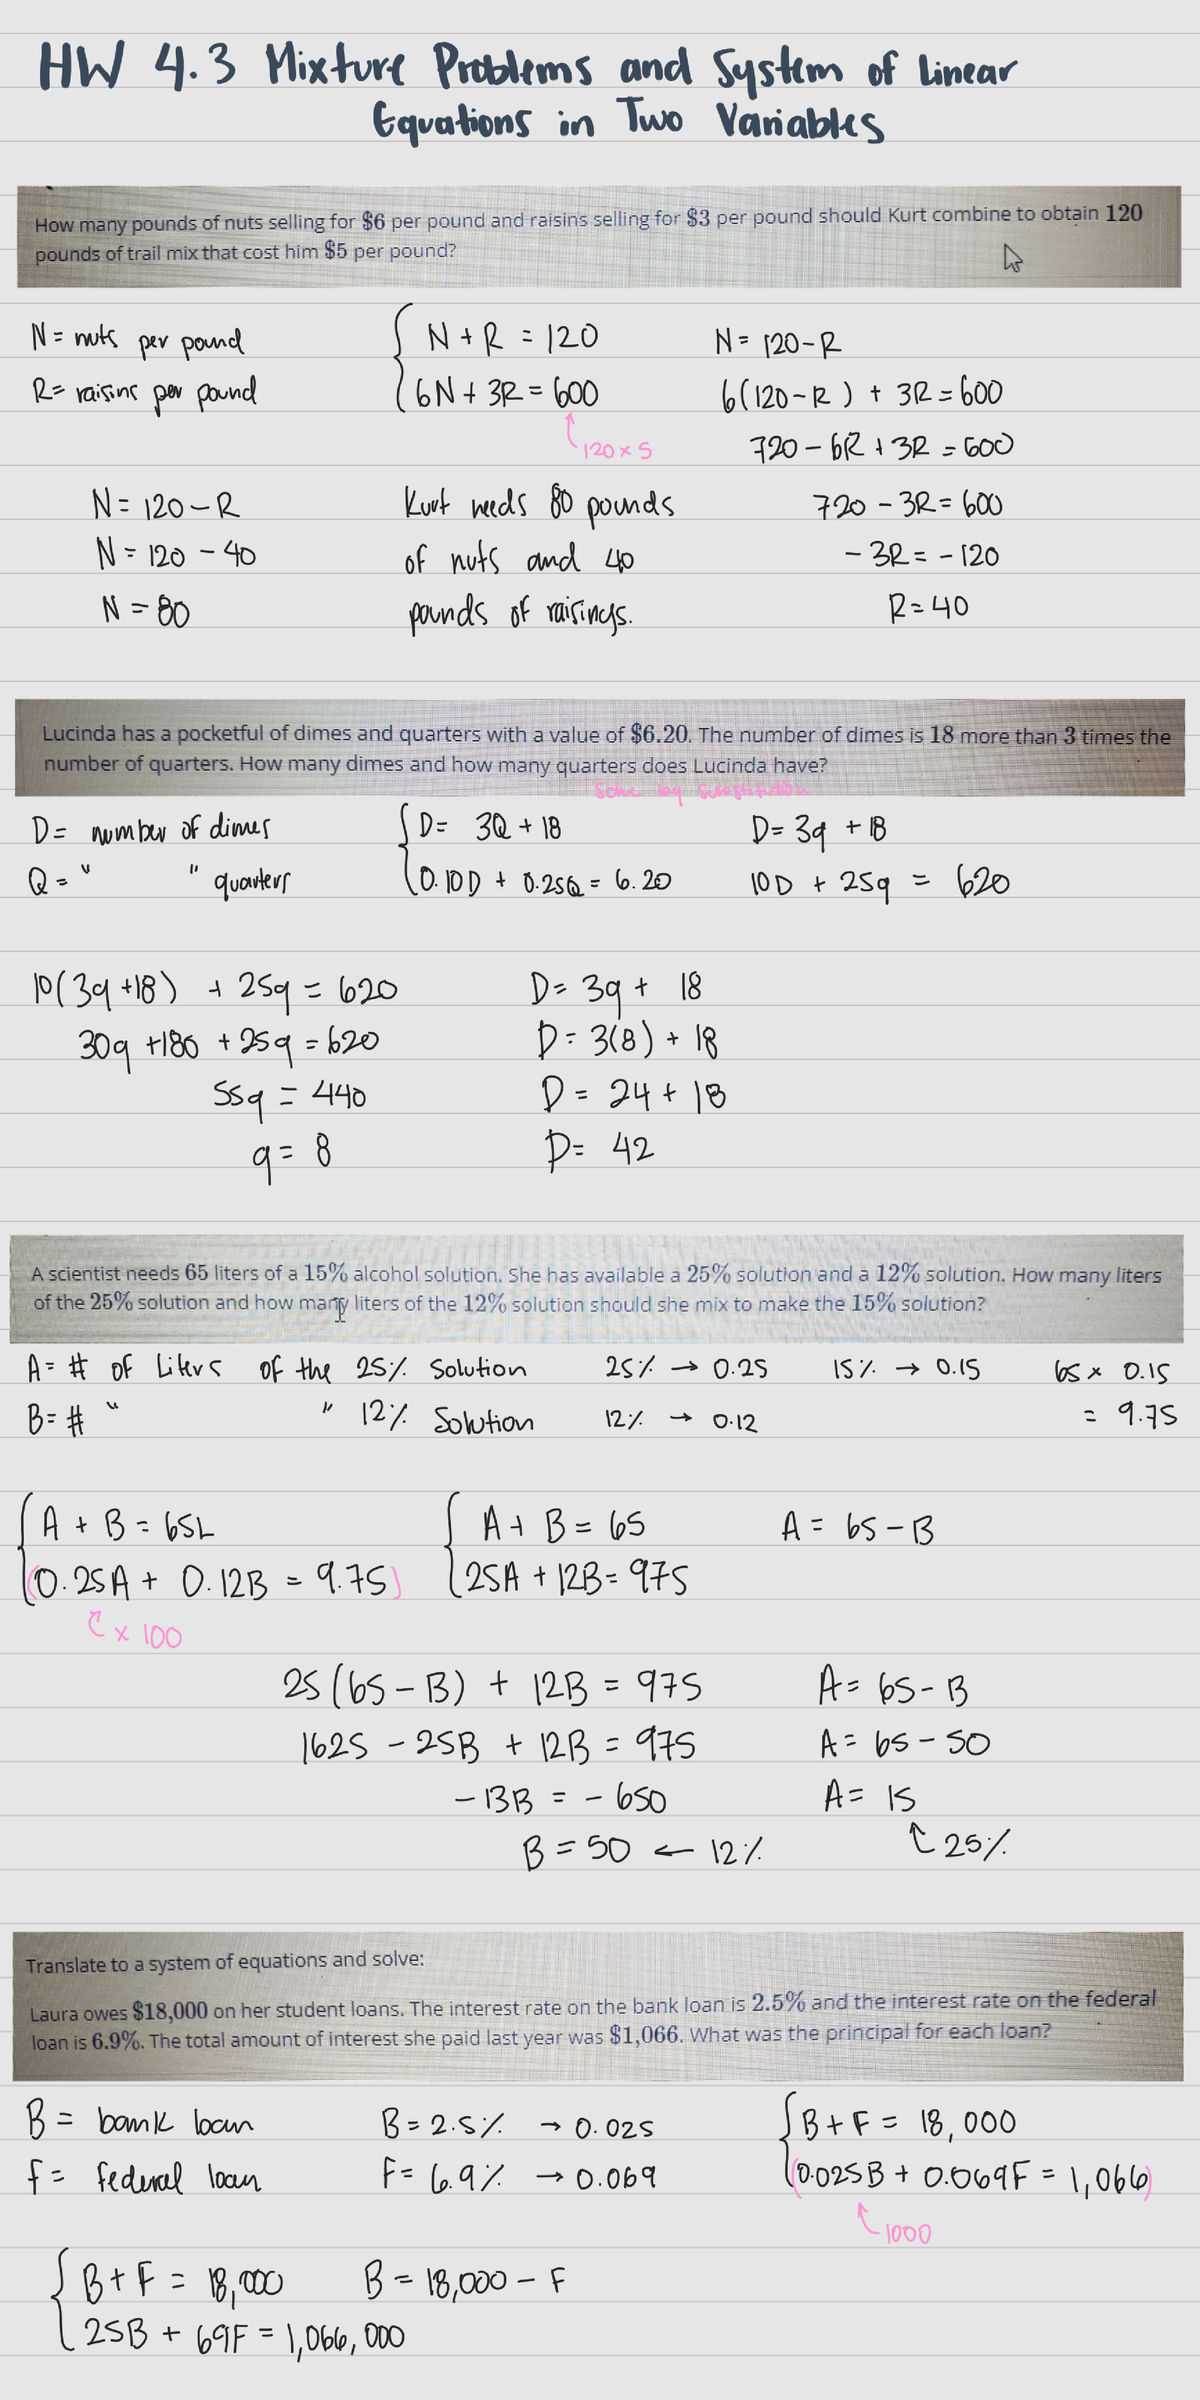 HW 4.3 Mixture Problems and System of Linear
Equations in Two Variables
How many pounds of nuts selling for $6 per pound and raisins selling for $3 per pound should Kurt combine to obtain 120
pounds of trail mix that cost him $5 per pound?
N = nuts per pound
R = raisins per pound
N + R = 120
6N + 3R = 600
120 x 5
N = 120 - R
6(120 - R) + 3R = 600
720 - 6R + 3R = 600
720 - 3R = 600
- 3R = - 120
R = 40
N = 120 - R
N = 120 - 40
N = 80
Kurt needs 80 pounds
of nuts and 40
pounds of raisings.
Lucinda has a pocketful of dimes and quarters with a value of $6.20. The number of dimes is 18 more than 3 times the
number of quarters. How many dimes and how many quarters does Lucinda have?
Solve by substitution
D = number of dimes
Q = " " quarters
D = 3Q + 18
0.10D + 0.25Q = 6.20
D = 3q + 18
10D + 25q = 620
10(3q + 18) + 25q = 620
30q + 180 + 25q = 620
55q = 440
q = 8
D = 3q + 18
D = 3(8) + 18
D = 24 + 18
D = 42
A scientist needs 65 liters of a 15% alcohol solution. She has available a 25% solution and a 12% solution. How many liters
of the 25% solution and how many liters of the 12% solution should she mix to make the 15% solution?
A = # of Liters of the 25% Solution
B = # " " 12% Solution
25% → 0.25
12% → 0.12
15% → 0.15
65 x 0.15
= 9.75
A + B = 65L
(0.25A + 0.12B = 9.75)
x 100
A + B = 65
25A + 12B = 975
A = 65 - B
25(65 - B) + 12B = 975
1625 - 25B + 12B = 975
- 13B = - 650
B = 50 ← 12%
A = 65 - B
A = 65 - 50
A = 15
↑ 25%
Translate to a system of equations and solve:
Laura owes $18,000 on her student loans. The interest rate on the bank loan is 2.5% and the interest rate on the federal
loan is 6.9%. The total amount of interest she paid last year was $1,066. What was the principal for each loan?
B = bank loan
F = federal loan
B = 2.5% → 0.025
F = 6.9% → 0.069
B + F = 18,000
(0.025B + 0.069F = 1,066)
1000
B + F = 18,000
25B + 69F = 1,066,000
B = 18,000 - F